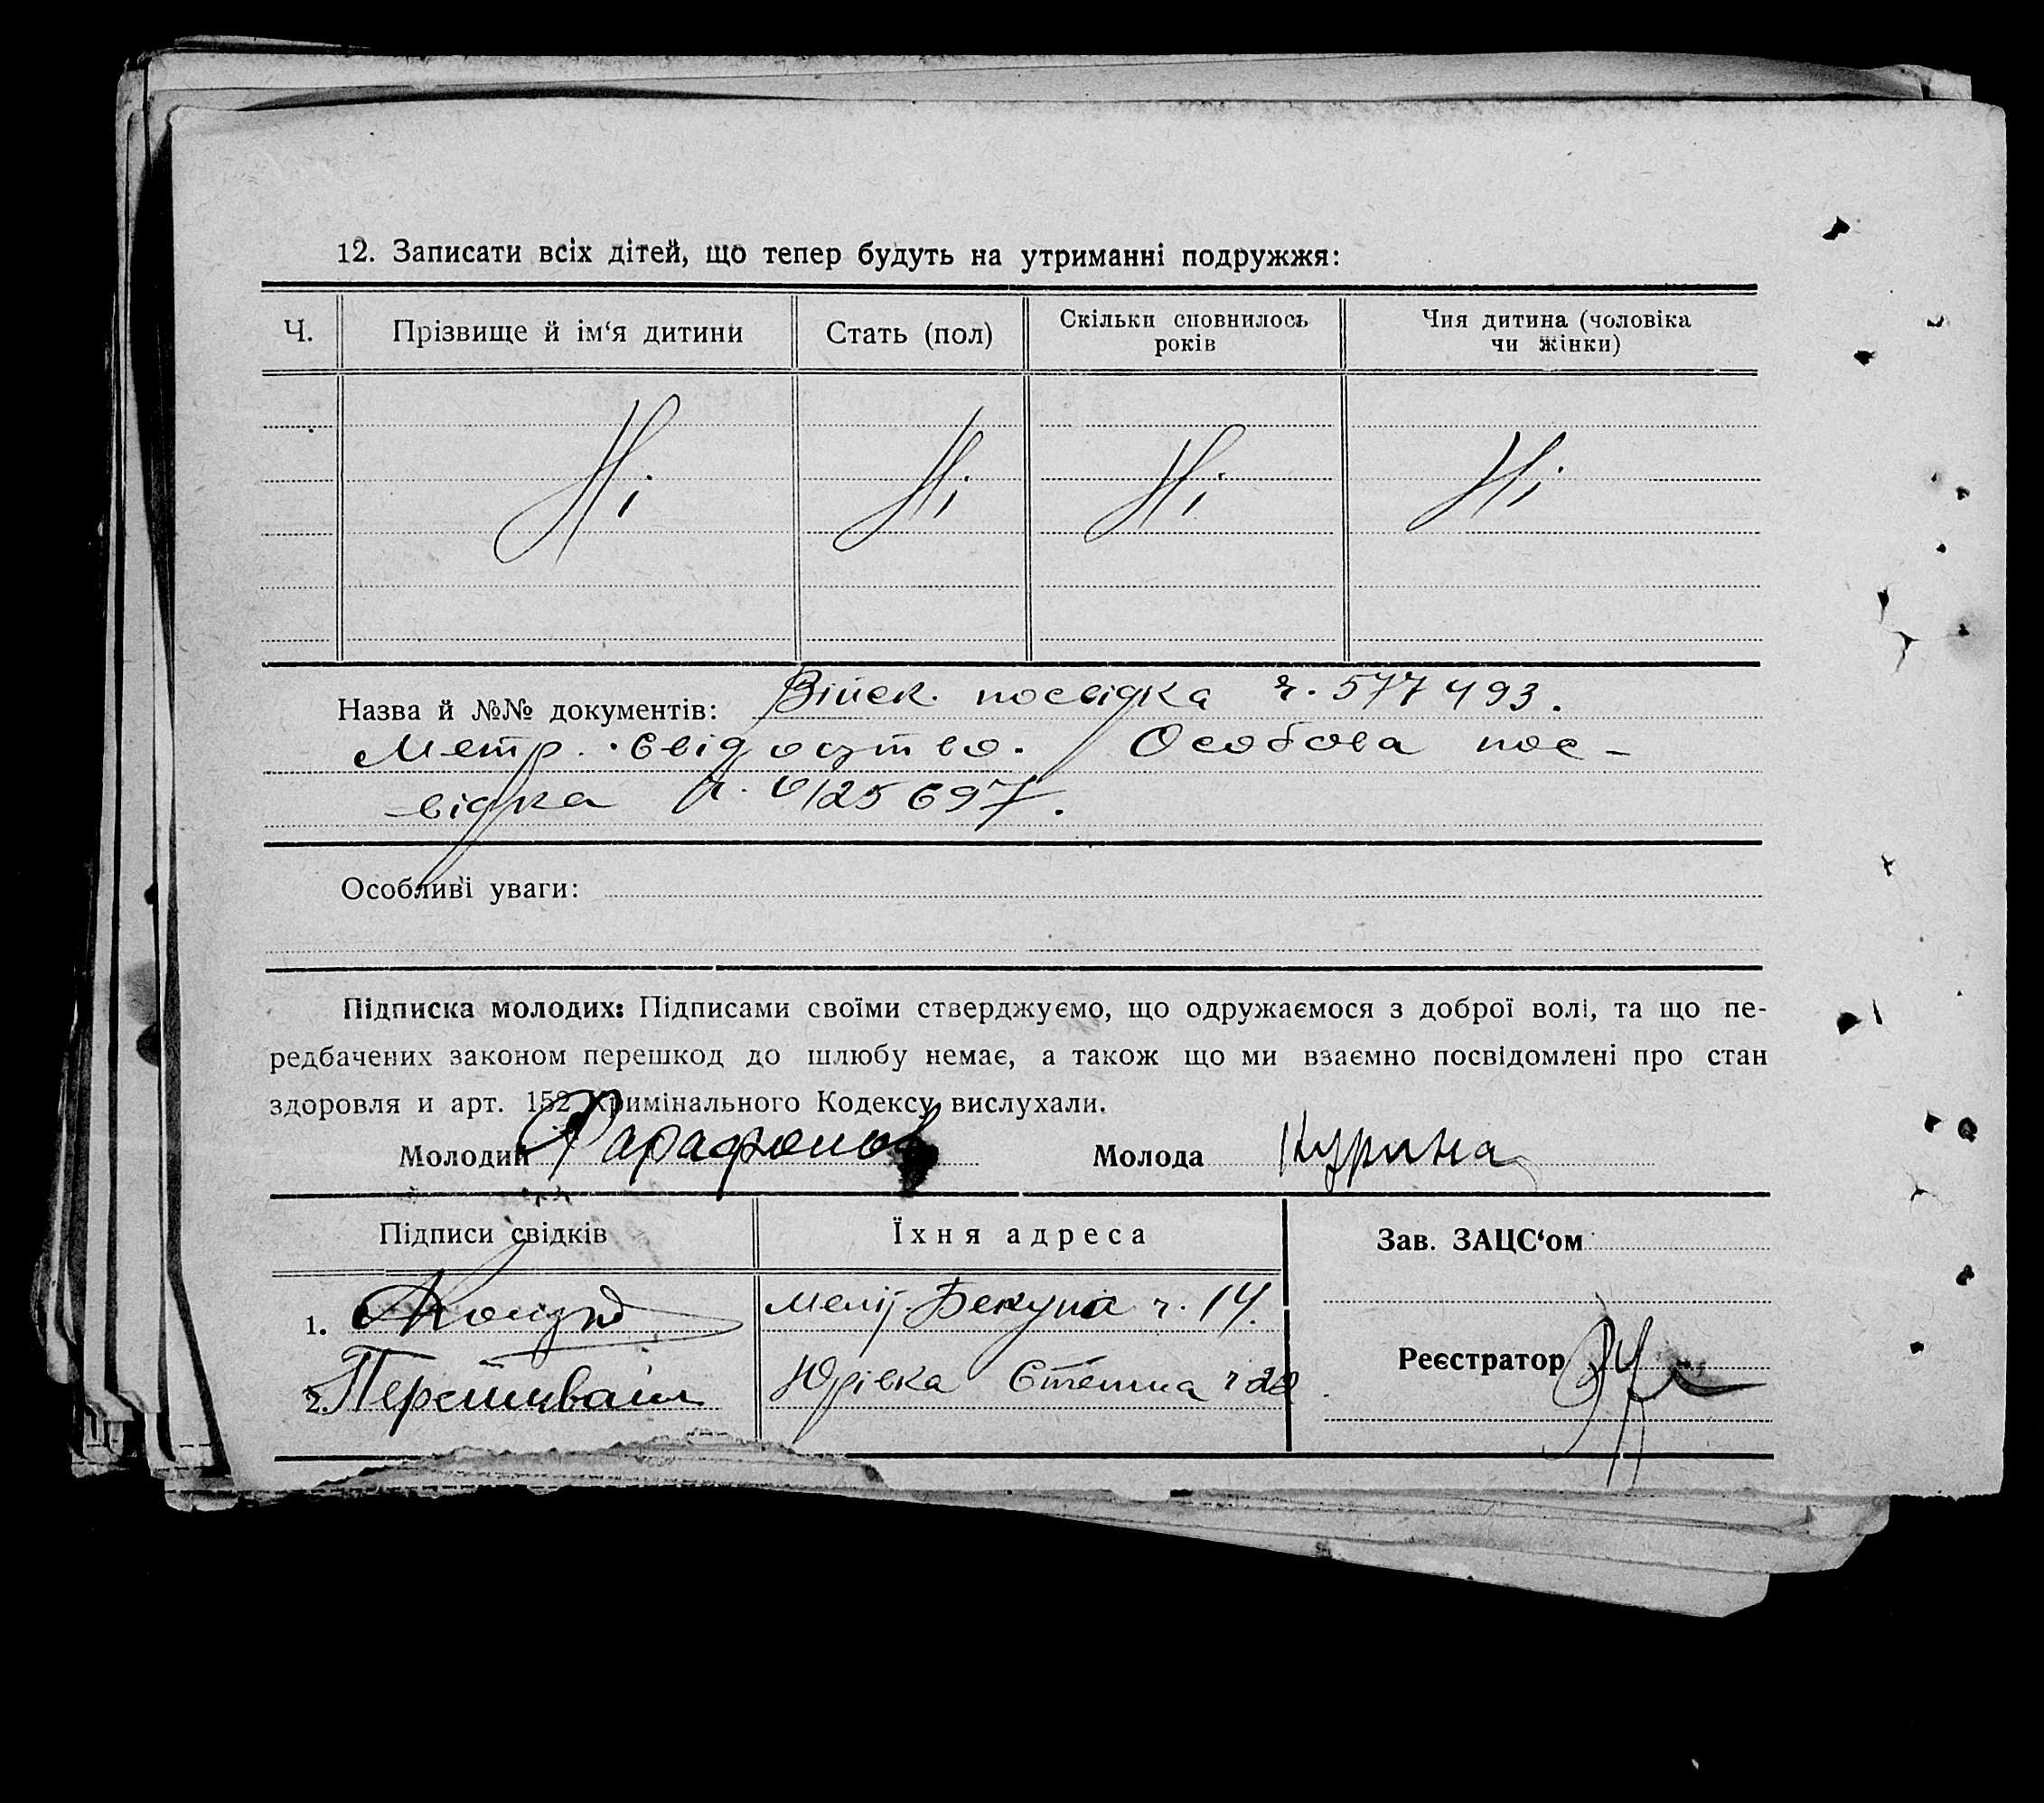 12. Записати всіх дітей, що тепер будуть на утриманні подружжя:
Ч. Прізвище й ім‘я дитини Стать (пол) Скільки сповнилось років Чия дитина (чоловіка чи жінки)
Ні Ні Ні Ні
Назва й №№ документів: Війск. посвідка ч. 577493.
Метр. свідоцтво. Особова пос-
відка ч. 025697.
Особливі уваги:
Підписка молодих: Підписами своїми стверджуємо, що одружаємося з доброї волі, та що пе-
редбачених законом перешкод до шлюбу немає, а також що ми взаємно посвідомлені про стан
здоровля и арт. 152 Кримінального Кодексу вислухали.
Молодий Фарафонов Молода Курина
Підписи свідків Їхня адреса Зав. ЗАЦС‘ом
1. ч. 14.
Реєстратор
2. Юрівка Степна ч 20